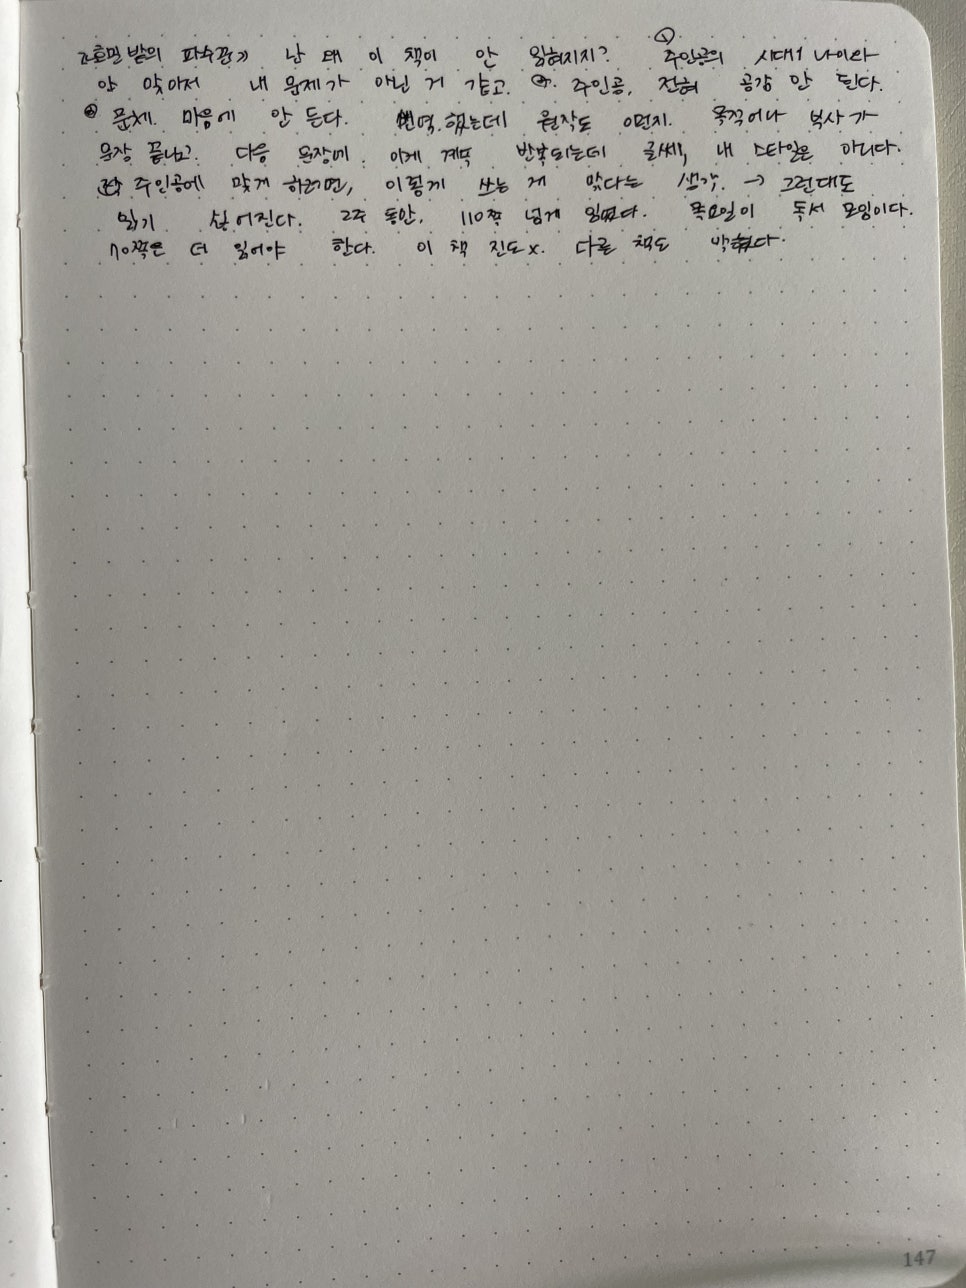 《호밀밭의 파수꾼》 난 왜 이 책이 안 읽혀지지? ① 주인공의 시대나 나이와
안 맞아서 내 문제가 아닌 거 같고. 주인공, 전혀 공감 안 된다.
② 문체. 마음에 안 든다. 번역.했는데 원작도 이런지. 목적어나 부사가
문장 끝나고. 다음 문장에 이게 계속 반복되는데 글쎄, 내 스타일은 아니다.
주인공에 맞게 하려면, 이렇게 쓰는 게 맞다는 생각. → 그런대도
읽기 싫어진다. 2주 동안, 110쪽 넘게 읽었다. 목요일이 독서 모임이다.
70쪽은 더 읽어야 한다. 이 책 진도x. 다른 책도
147